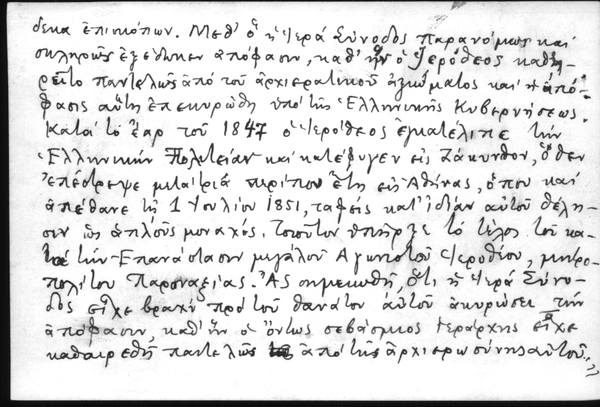 δεκα ἐπισκόπων. Μεθ' ὃ ἡ Ἱερά Σύνοδος παρανόμως καί
σκληρῶς ἐξέδωκεν ἀπόφασιν, καθ' ἥν ὁ Ἱερόθεος καθη-
ρεῖτο παντελῶς ἀπό τοῦ ἀρχιερατικοῦ ἀξιώματος καί ἡ ἀπό-
φασις αὕτη ἐπεκυρώθη ὑπό τῆς Ἑλληνικῆς Κυβερνήσεως.
Κατά τό ἔαρ τοῦ 1847 ὁ Ἱερόθεος ἐγκατέλιπε τήν
Ἑλληνικήν Πολιτείαν καί κατέφυγεν εἰς Ζάκυνθον, ὅθεν
ἐπέστρεψε μετά τρία περίπου ἔτη εἰς Ἀθήνας, ὅπου καί
ἀπέθανε τῇ 1 Ἰουλίου 1851, ταφείς κατ' ἰδίαν αὐτοῦ θέλη-
σιν ὡς ἁπλοῦς μοναχός. Τοιοῦτον ὑπῆρξε τό τέλος τοῦ κα-
τά τήν Ἐπανάστασιν μεγάλου Ἀγωνιστοῦ Ἱεροθέου, μητρο-
πολίτου Παροναξίας. Ἄς σημειωθῇ, ὅτι ἡ Ἱερά Σύνο-
δος εἶχε βραχύ πρό τοῦ θανάτου αὐτοῦ ἀκυρώσει τήν
ἀπόφασιν, καθ' ἥν ὁ ὄντως σεβάσμιος ἱεράρχης εἶχε
καθαιρεθῆ παντελῶς ἀπό τῆς ἀρχιερωσύνης αὐτοῦ."